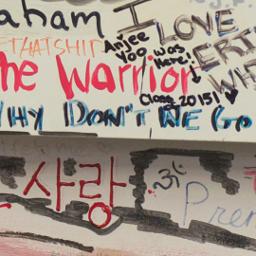 aham
I LOVE
ETHATSHIT
Anjee
Yoo was
Here!
ERI
The Warrior
WH
Class 2015!
WHY DON'T WE GO
사랑
ૐ
Prem